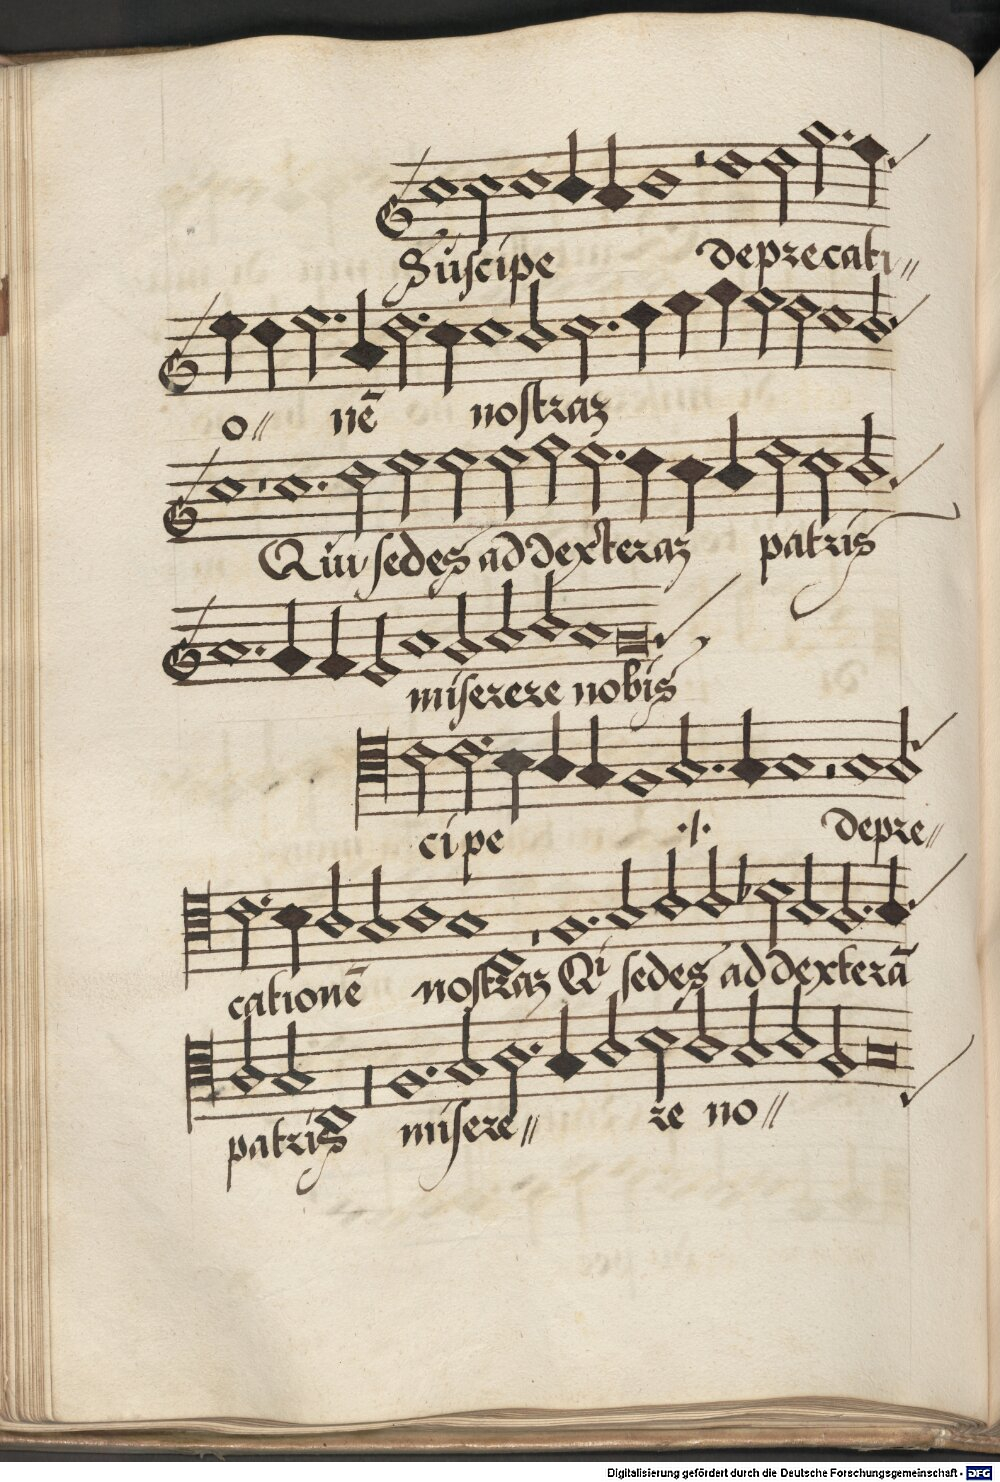 Suscipe deprecati//
o// nē nostraꝫ
Qui sedes ad dexteraꝫ patris
miserere nobis
cipe ·/· depre//
cationē nostraꝫ Qi sedes ad dexterā
patris misere// re no//
Digitalisierung gefördert durch die Deutsche Forschungsgemeinschaft - DFG